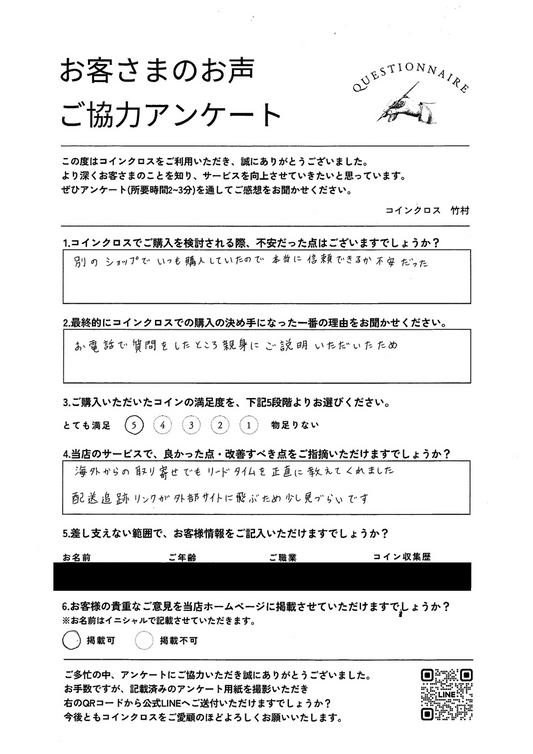 お客さまのお声
QUESTIONNAIRE
ご協力アンケート
この度はコインクロスをご利用いただき、誠にありがとうございました。
より深くお客さまのことを知り、サービスを向上させていきたいと思っています。
ぜひアンケート(所要時間2~3分)を通してご感想をお聞かせください。
コインクロス 竹村
1.コインクロスでご購入を検討される際、不安だった点はございますでしょうか?
別のショップでいつも購入していたので本当に信頼できるか不安だった
2.最終的にコインクロスでの購入の決め手になった一番の理由をお聞かせください。
お電話で質問をしたところ親身にご説明いただいたため
3.ご購入いただいたコインの満足度を、下記5段階よりお選びください。
とても満足 5 4 3 2 1 物足りない
4.当店のサービスで、良かった点・改善すべき点をご指摘いただけますでしょうか?
海外からの取り寄せでもリードタイムを正直に教えてくれました
配送追跡リンクが外部サイトに飛ぶため少し見づらいです
5.差し支えない範囲で、お客様情報をご記入いただけますでしょうか?
お名前 ご年齢 ご職業 コイン収集歴
6.お客様の貴重なご意見を当店ホームページに掲載させていただけますでしょうか?
※お名前はイニシャルで記載させていただきます。
掲載可 掲載不可
ご多忙の中、アンケートにご協力いただき誠にありがとうございました。
お手数ですが、記載済みのアンケート用紙を撮影いただき
右のQRコードから公式LINEへご送付いただけますでしょうか?
今後ともコインクロスをご愛顧のほどよろしくお願いいたします。
LINE